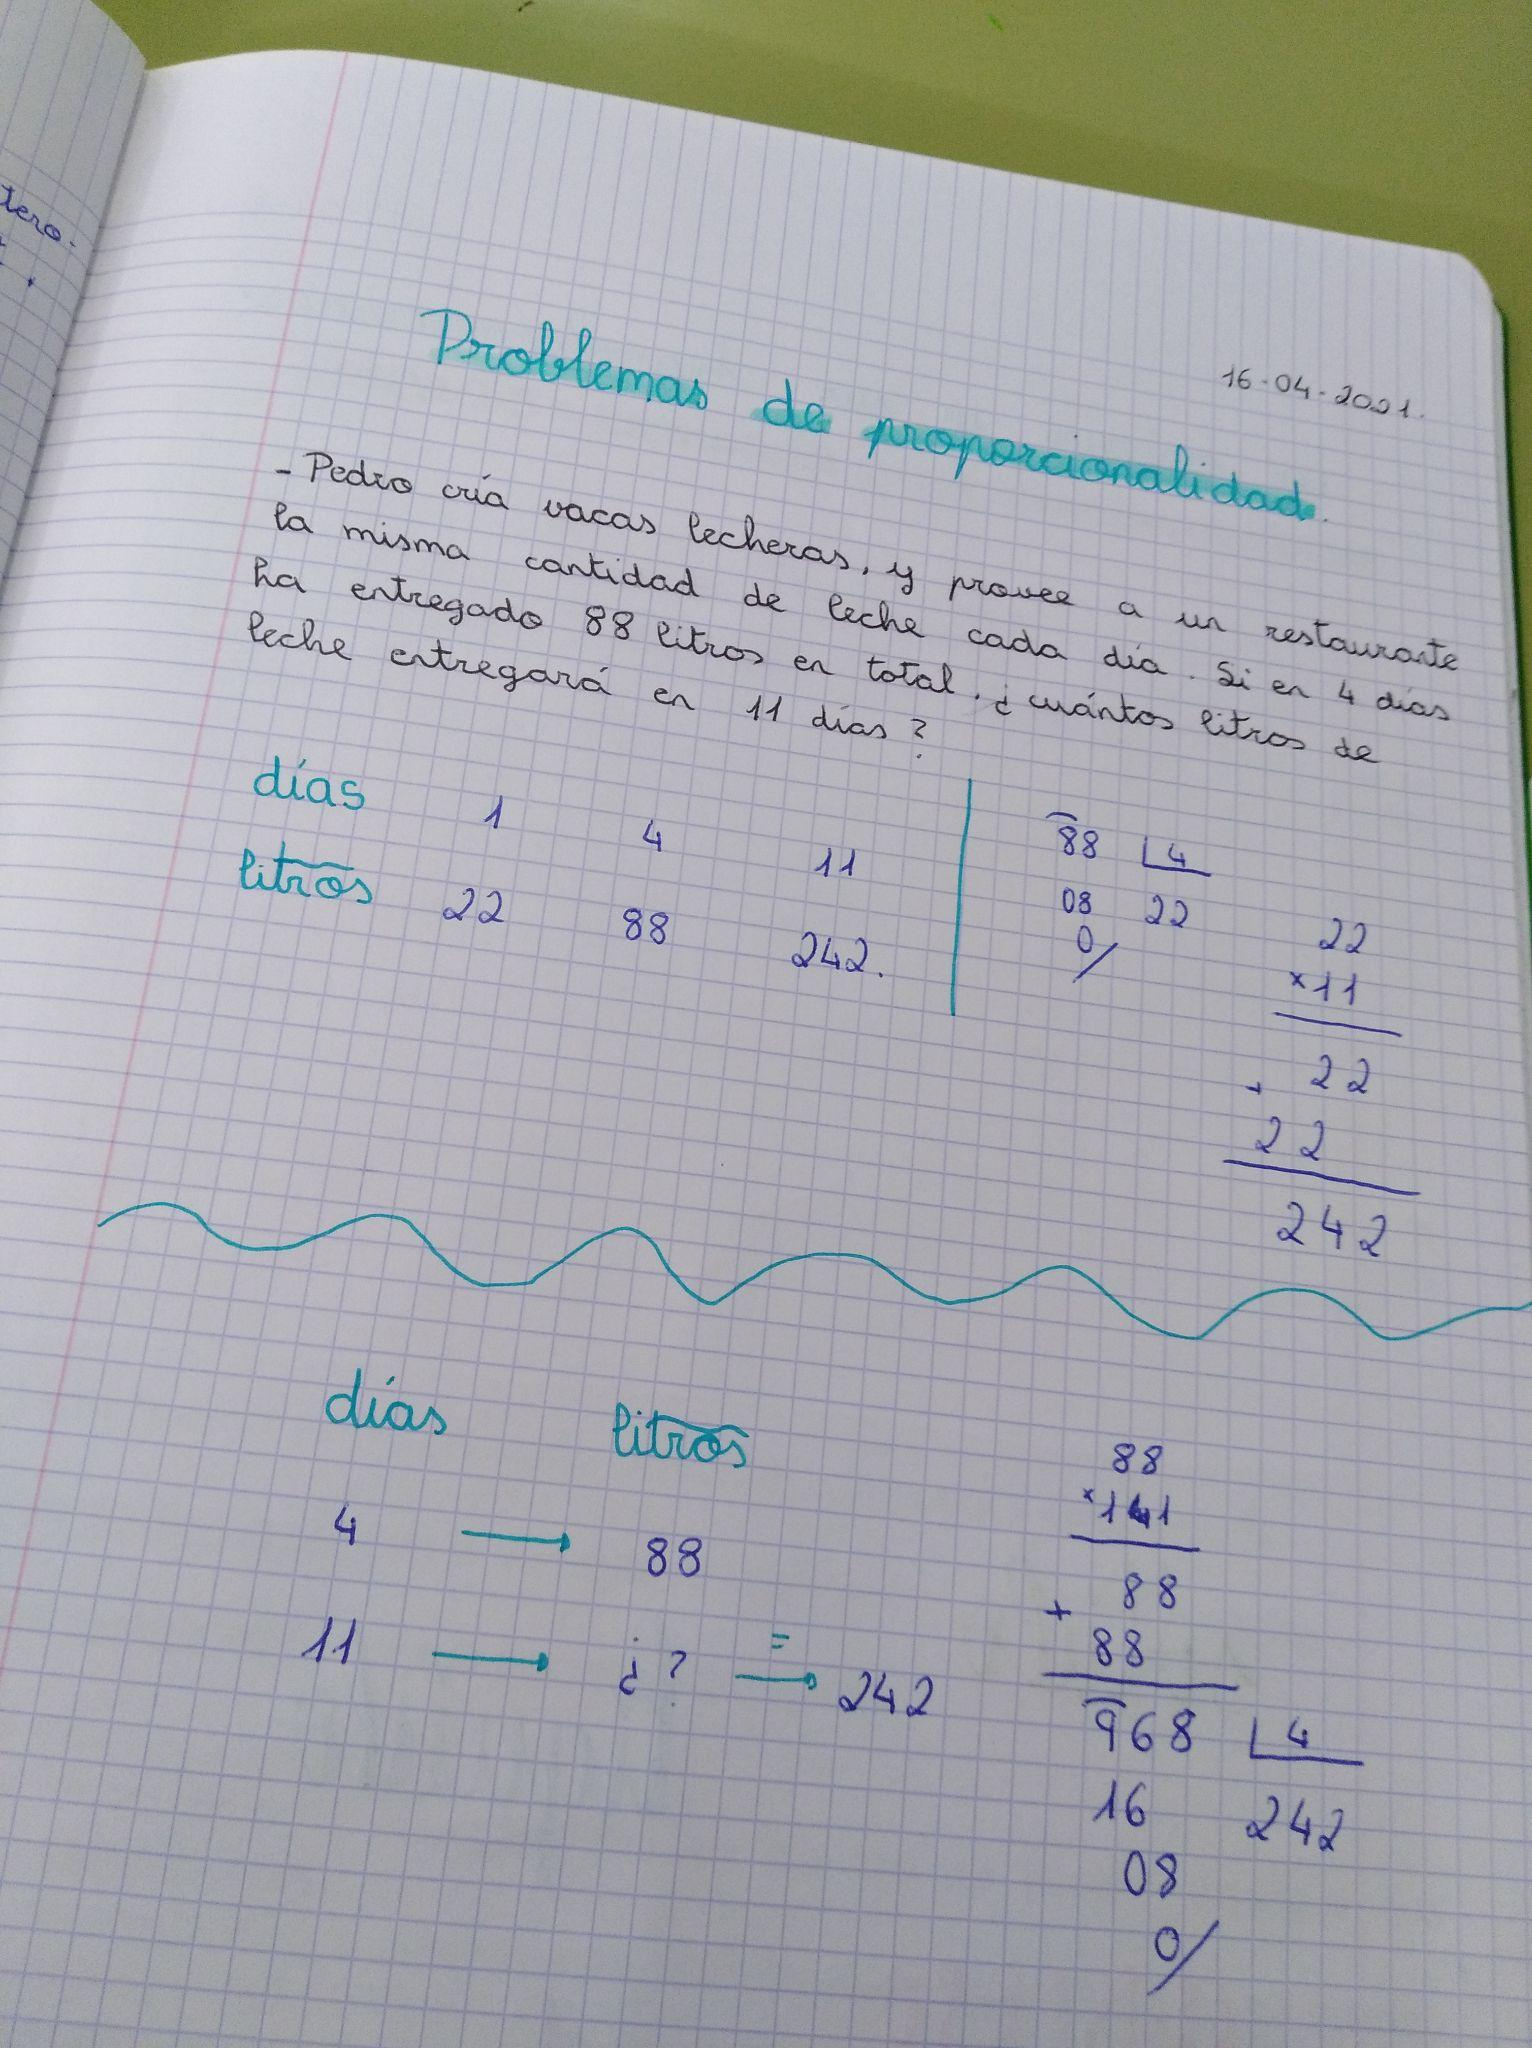 tero.
16-04-2021.
Problemas de proporcionalidad.
- Pedro cría vacas lecheras, y provee a un restaurante
la misma cantidad de leche cada día. Si en 4 días
ha entregado 88 litros en total, ¿cuántos litros de
leche entregará en 11 días?
días 1 4 11
litros 22 88 242.
88 4
08 22
0/
22
x11
22
+
22
242
días litros
4 → 88
11 → ¿? = → 242
88
x11
88
+
88
968 4
16 242
08
0/